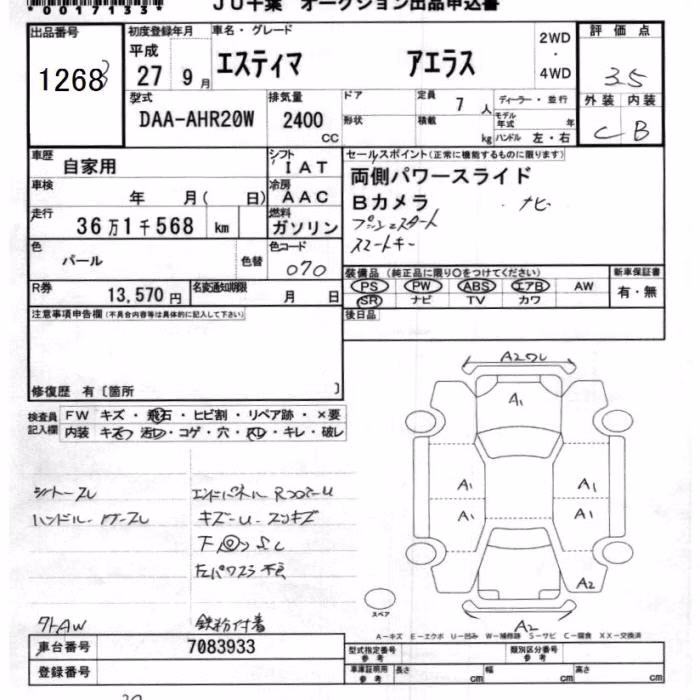 *00171333*
JU千葉 オークション出品申込書
出品番号
初度登録年月
車名・グレード
2WD
・
4WD
評価点
1268
平成
27 9月
エスティマ アエラス
3.5
型式
排気量
ドア
定員 7人
ディーラー・並行
外装 内装
DAA-AHR20W
2400 CC
形状
積載 kg
モデル年式 年
ハンドル 左・右
C B
車歴
自家用
シフト
IAT
セールスポイント(正常に機能するものに限ります)
車検
年 月( 日)
冷房
AAC
両側パワースライド
Bカメラ ナビ
走行
36万1千568 km
燃料
ガソリン
プッシュスタート
スマートキー
色
パール
色替
色コード
070
装備品(純正品に限り○をつけてください)
新車保証書
PS PW ABS エアB AW
有・無
R券
13,570円
名変通知期限
月 日
SR ナビ TV カワ
注意事項申告欄(不具合内容等は具体的に記入して下さい)
後日品
修復歴 有〔箇所 〕
検査員
記入欄
FW キズ・飛石・ヒビ割・リペア跡・×要
内装 キズ・汚れ・コゲ・穴・スレ・キレ・破レ
A2ワレ
A1
A1 A1
A1 A1
A2
A2
シートスレ
エンドパネル
ハンドル
キズ
鉄粉付着
スペア
A-キズ E-エクボ U-凹み W-補修跡 S-サビ C-腐食 XX-交換済
車台番号
7083933
型式指定番号
参考
類別区分番号
参考
登録番号
車庫証明用
参考
長さ cm
幅 cm
高さ cm